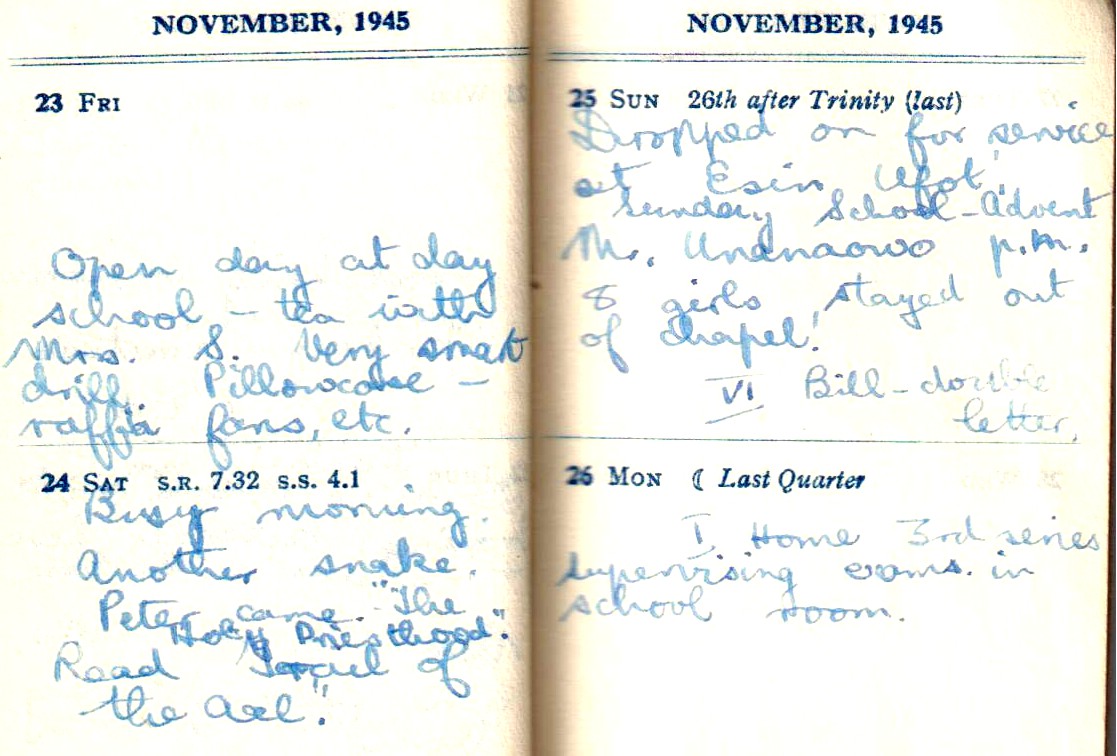 NOVEMBER, 1945
23 FRI
Open day at day
school – tea with
Mrs. S. Very smart
drill. Pillowcase –
raffia fans, etc.
24 SAT S.R. 7.32 S.S. 4.1
Busy morning.
Another snake.
Peter came. "The
Holy Priesthood".
Read of
the
NOVEMBER, 1945
25 SUN 26th after Trinity (last)
Dropped on for service
at Esin Ufot,
Sunday School – Advent
Mr. p.m.
8 girls stayed out
of chapel!
VI Bill – double
letter.
26 MON ☾ Last Quarter
I Home 3rd series
supervising exams. in
school room.